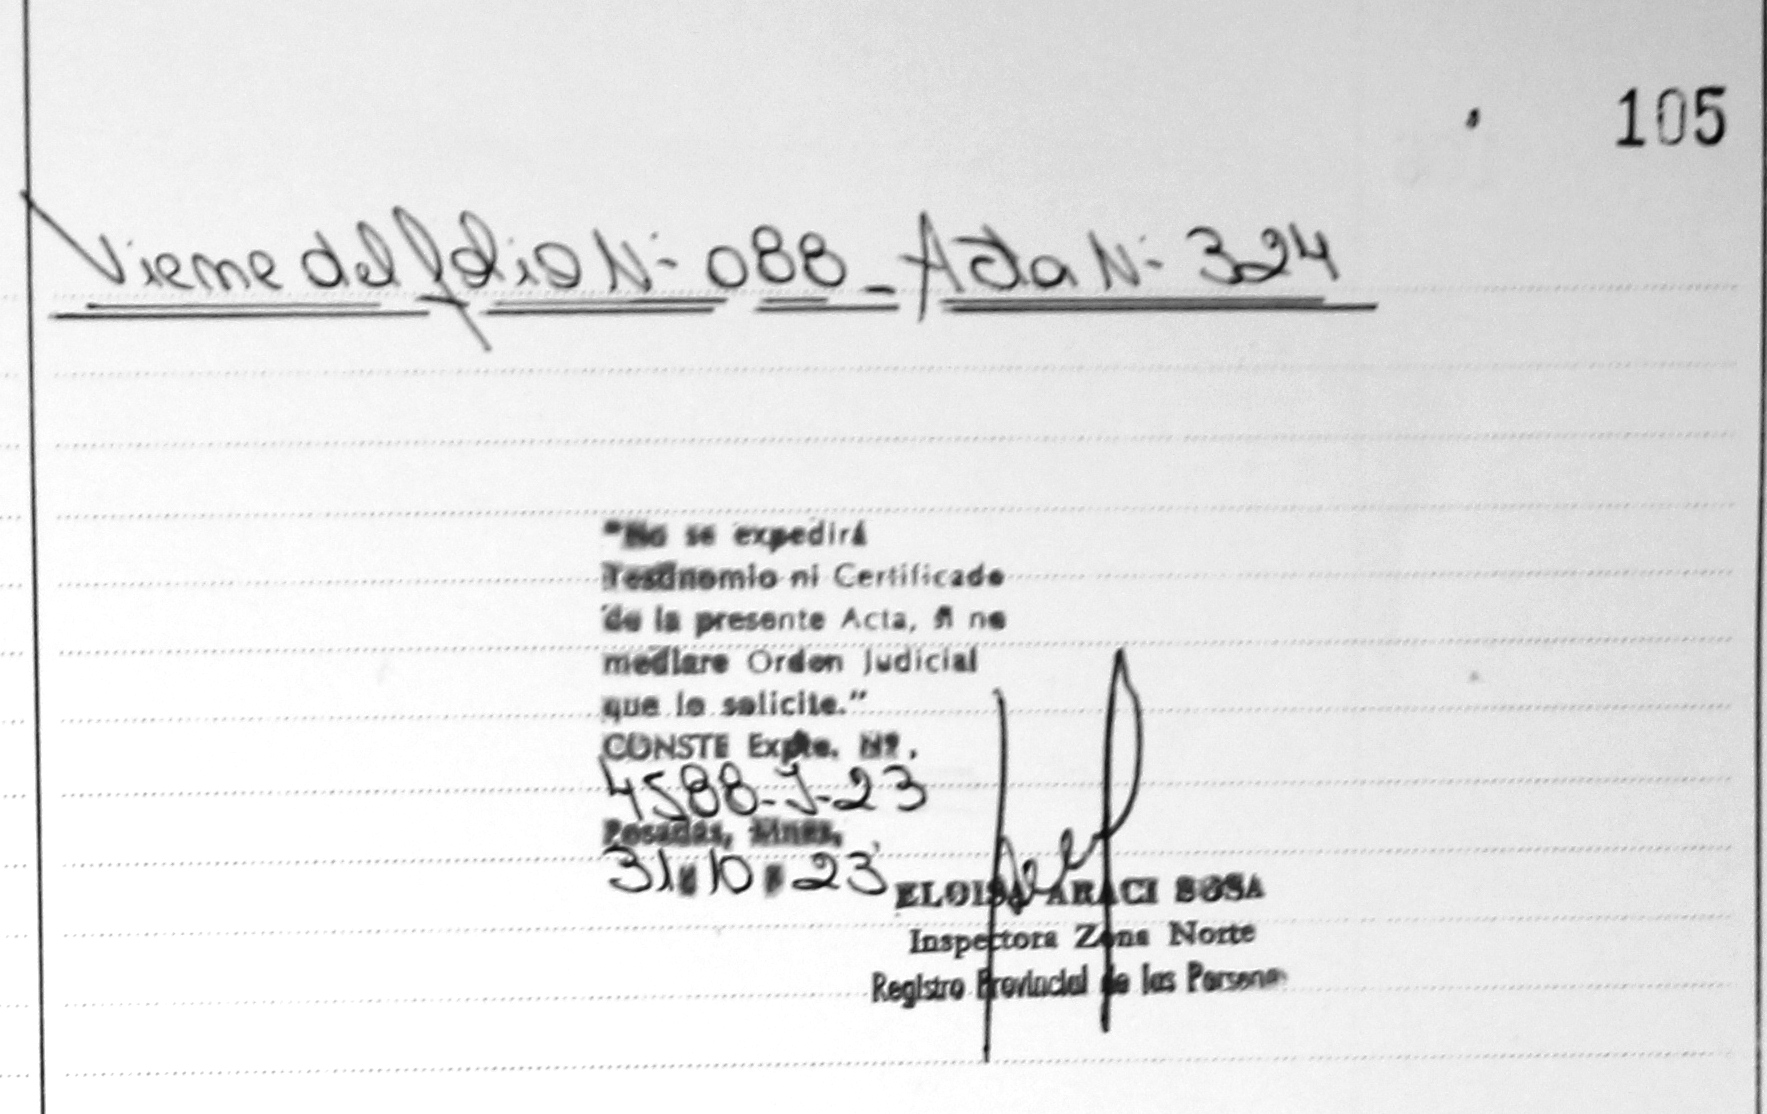 105
Viene del folio N- 088 - Acta N- 324
"No se expedirá
Testimomio ni Certificado
de la presente Acta, si no
mediare Orden Judicial
que lo solicite."
CONSTE Expte. Nº.
4588-J-23
Posadas, Mnes,
31.10.23
ELOISA ARACI SOSA
Inspectora Zona Norte
Registro Provincial de las Persona